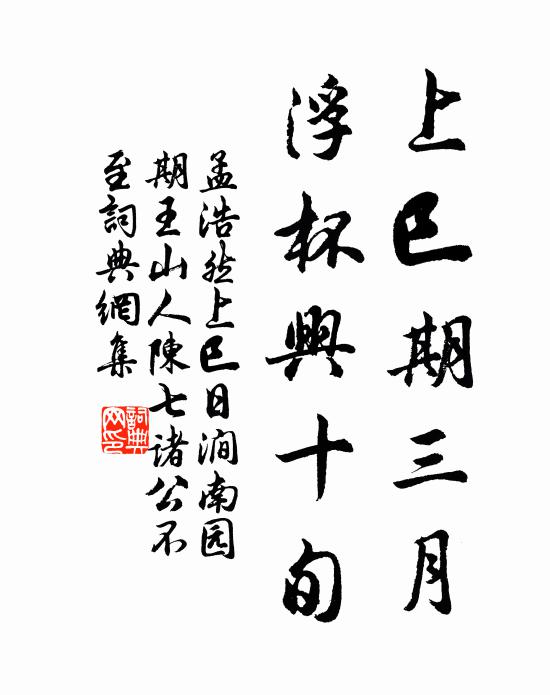 上巳期三月
浮杯興十旬
孟浩然上巳日澗南园
期王山人陳七诸公不
至詞典網集
詞典
网印